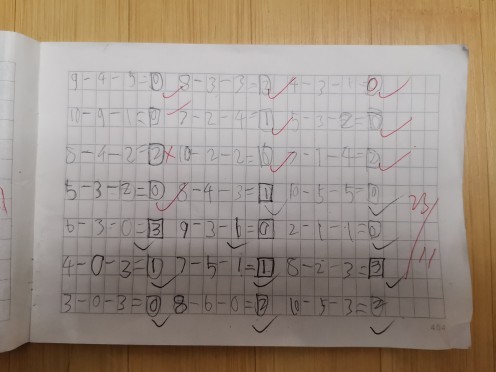 9-4-5=0 8-3-3=2 4-3-1=0
10-9-1=0 7-2-4=1 5-3-2=0
8-4-2=2 10-2-2=6 7-1-4=2
5-3-2=0 8-4-3=1 10-5-5=0
6-3-0=3 9-3-6=0 2-1-1=0
4-0-3=1 7-5-1=1 8-2-3=3
3-0-3=0 8-6-0=2 10-5-3=2